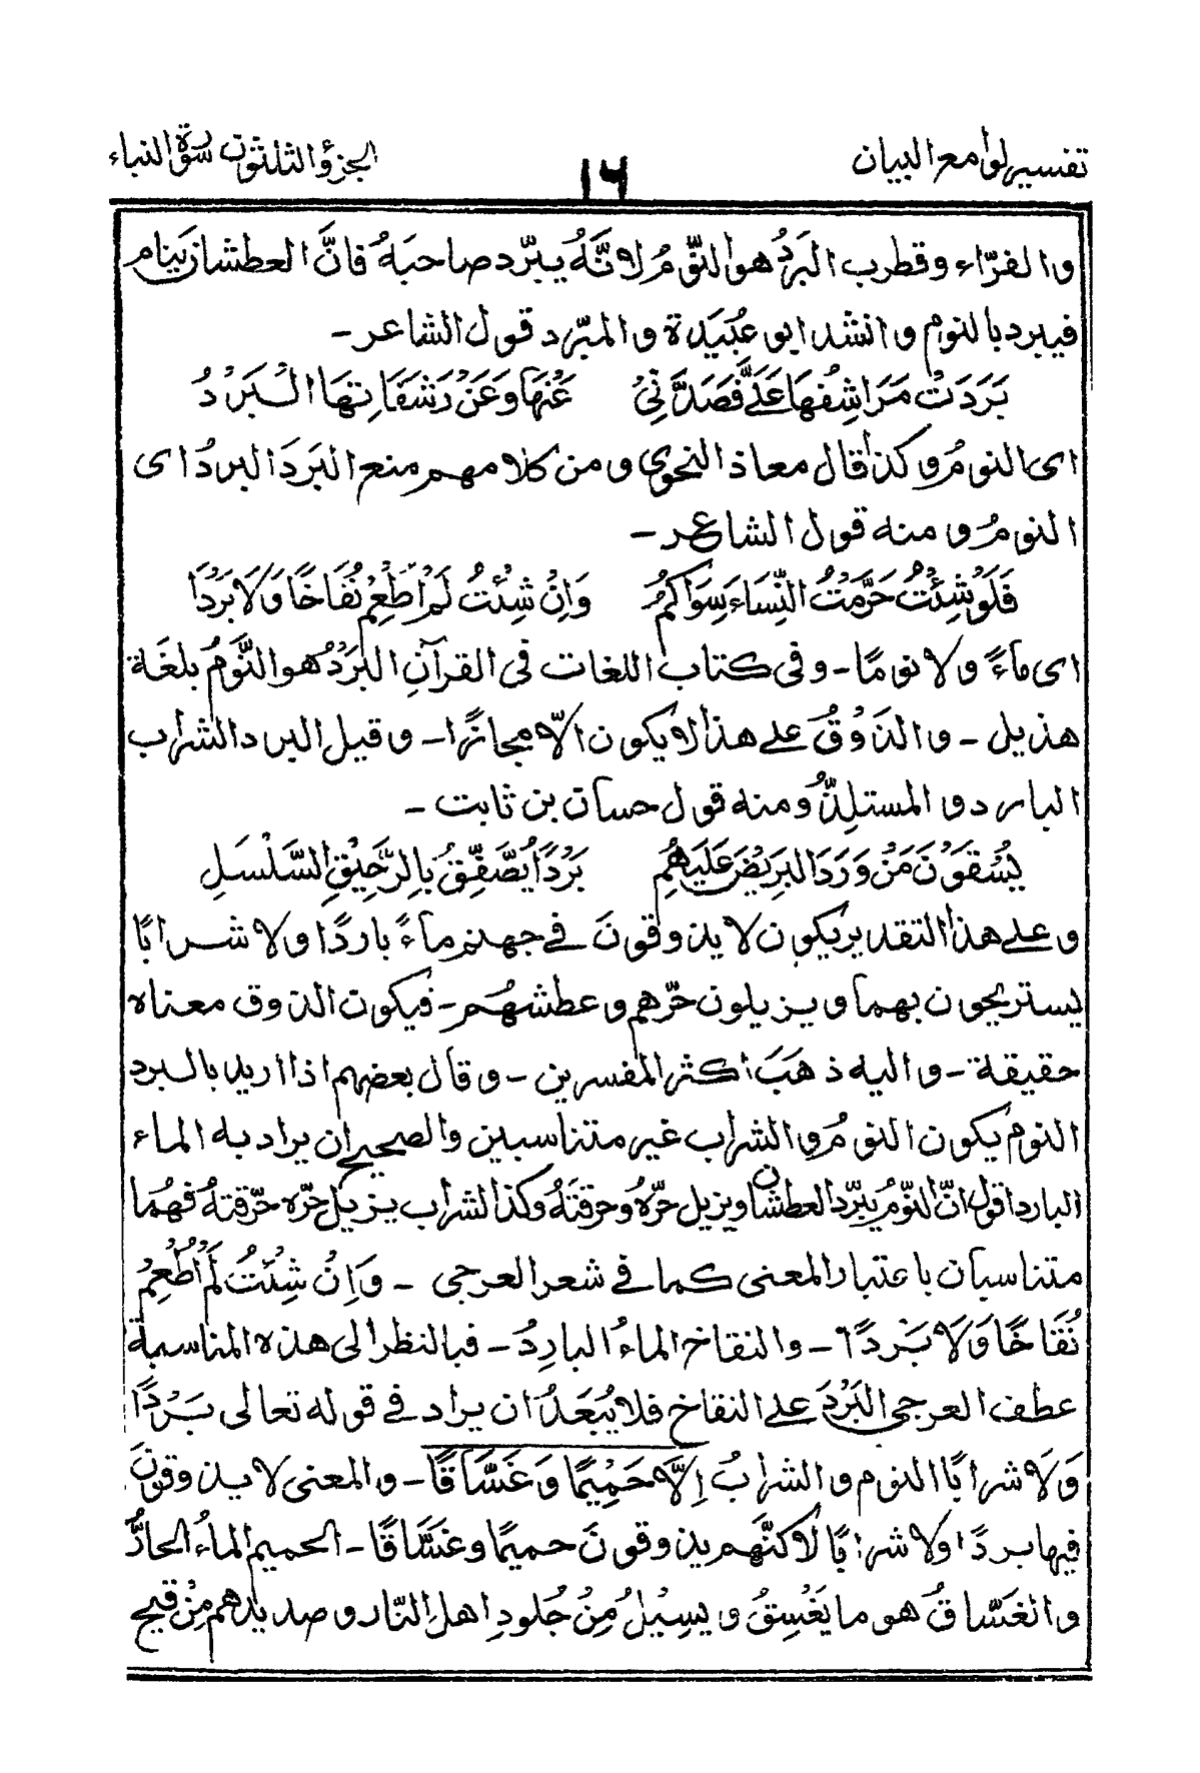 تفسير لوامع البيان
١٦
الجزؤ الثلثون سورة النباء
والفرّاء وقطرب البَردُ هو النوّمُ لانّهُ يبرّد صاحبَهُ فانَّ العطشان يَنام
فيبرد بالنوم وانشد ابو عُبَيدة والمبرّد قول الشاعر -
بَرَدَتْ مَرَاشِفُهَا عَلَيَّ فَصَدَّنِيْ عَنْهَا وَعَنْ رَشَفَاتِهَا الْبَرْدُ
اى النومُ وكذا قال معاذ النحوي ومن كلامهم منع البَردَ البردُ اى
النومُ ومنه قول الشاعر -
فَلَوْ شِئْتُ حَرَّمْتُ النِّسَاءَ سِوَاكُمُ وَاِنْ شِئْتُ لَمْ اَطْعِمْ نُقَاخًا وَلَا بَرْدًا
اى ماءً ولا نومًا - وفى كتاب اللغات فى القرآنِ البَرْدُ هو النَّومُ بلغة
هذيل - والذَوْقُ على هذا لا يكون الّا مجازًا - وقيل البرد الشراب
البارد والمستلِذُّ ومنه قول حسان بن ثابت -
يُسْقَوْنَ مَنْ وَرَدَ الْبَرِيْضَ عَلَيْهِمِ بَرْدًا يُصَفَّقُ بِالرَّحِيْقِ السَّلْسَلِ
وعلى هذا التقدير يكون لا يذوقونَ فى جهنم ماءً باردًا ولا شرابًا
يستريحون بهما ويزيلون حرّهم وعطشهُم - فيكون الذوق معناه
حقيقة - واليه ذهَبَ اكثر المفسرين - وقال بعضهم اذا اريد بالبرد
النوم يكون النومُ والشراب غير متناسبين والصحيح ان يراد به الماء
البارد اقول انّ النّومُ يبرّد العطشان ويزيل حرّهُ وحرقتَهُ وكذا الشراب يزيل حرّه حرّقتهُ فهُما
متناسبان باعتبار المعنى كما فى شعر العرجى - وَاِنْ شِئْتُ لَمْ اَطْعِمْ
نُقَاخًا وَلَا بَرْدًا - والنقاخ الماءُ البارِدُ - فبالنظر الى هذه المناسبة
عطف العرجى البَرْدَ على النقاخ فلا يُبْعَدُ ان يراد فى قوله تعالى بَرْدًا
وَلَا شرابًا النوم والشرابُ اِلَّا حَمِيْمًا وَغَسَّاقًا - والمعنى لا يذوقونَ
فيها بردًا ولا شرابًا لاكنَّهم يذوقونَ حميمًا وغسَّاقًا - الحميم الماءُ الحارُّ
والغَسّاقُ هو ما يَغْسِقُ ويسِيْلُ مِنْ جُلودِ اهلِ النّار وصديدهم مِنْ قيح